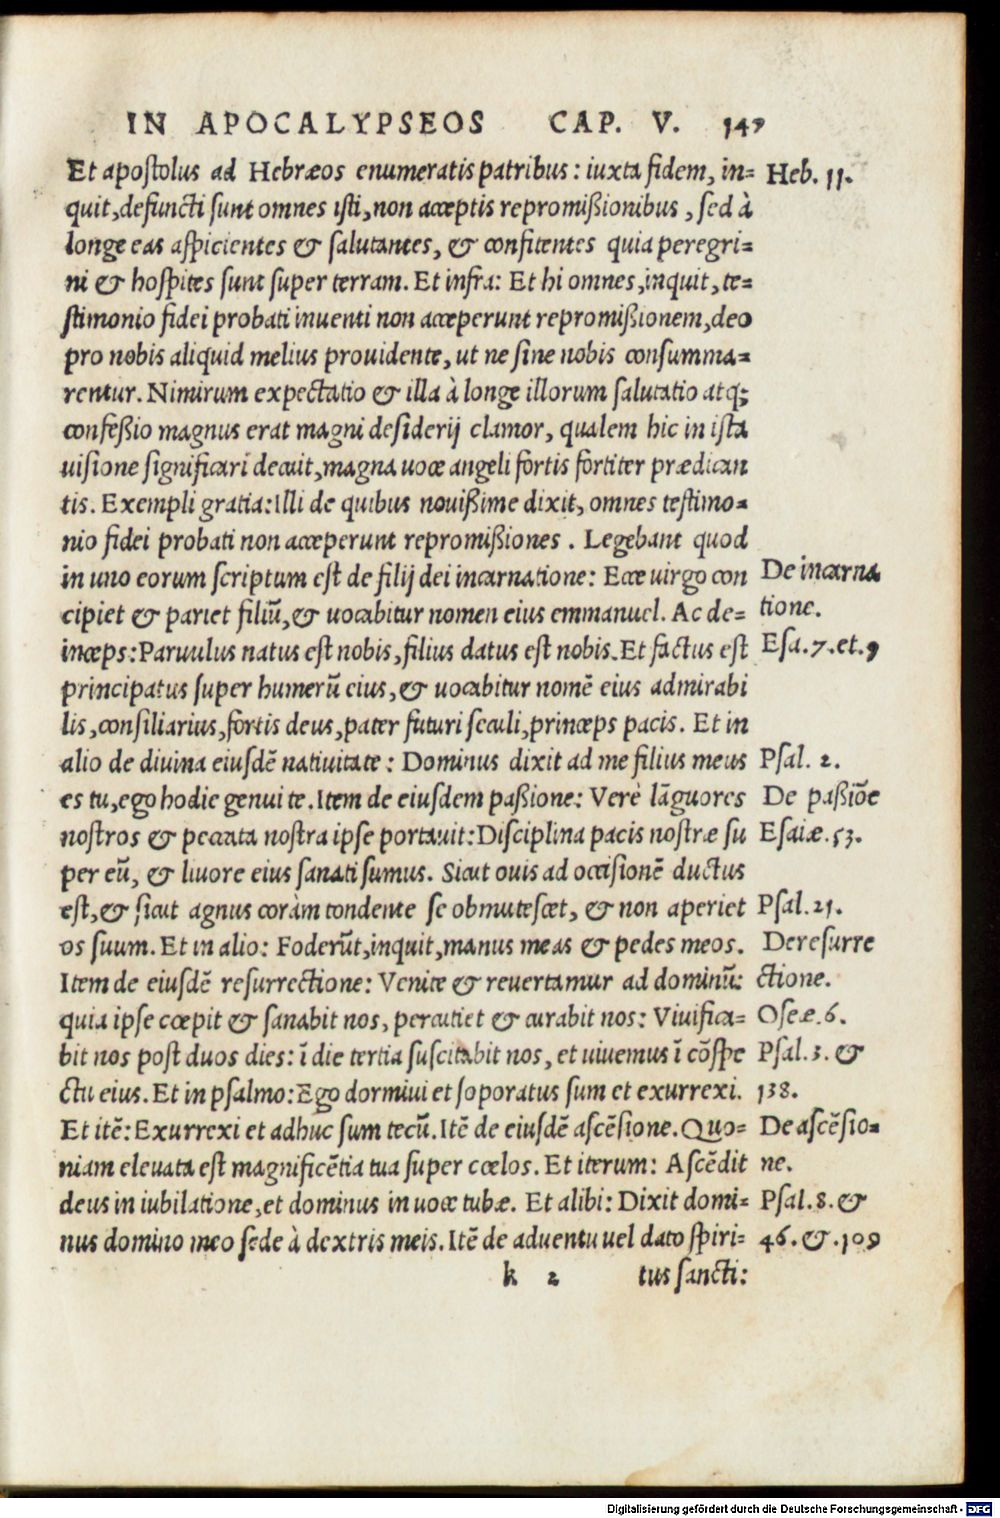 IN APOCALYPSEOS CAP. V. 147
Et apostolus ad Hebræos enumeratis patribus: iuxta fidem, in= Heb. 11.
quit, defuncti sunt omnes isti, non acceptis repromißionibus, sed à
longe eas aspicientes & salutantes, & confitentes quia peregri=
ni & hospites sunt super terram. Et infra: Et hi omnes, inquit, te=
stimonio fidei probati inuenti non acceperunt repromißionem, deo
pro nobis aliquid melius prouidente, ut ne sine nobis consumma=
rentur. Nimirum expectatio & illa à longe illorum salutatio atq;
confeßio magnus erat magni desiderij clamor, qualem hic in ista
uisione significari decuit, magna uoce angeli fortis fortiter prædican
tis. Exempli gratia: Illi de quibus nouißime dixit, omnes testimo=
nio fidei probati non acceperunt repromißiones. Legebant quod
in uno eorum scriptum est de filij dei incarnatione: Ecce uirgo con De incarna
cipiet & pariet filiũ, & uocabitur nomen eius emmanuel. Ac de= tione.
inceps: Paruulus natus est nobis, filius datus est nobis. Et factus est Esa. 7. et. 9
principatus super humerũ eius, & uocabitur nomẽ eius admirabi
lis, consiliarius, fortis deus, pater futuri seculi, princeps pacis. Et in
alio de diuina eiusdẽ natiuitate: Dominus dixit ad me filius meus Psal. 2.
es tu, ego hodie genui te. Item de eiusdem paßione: Verè lãguores De paßiõe
nostros & peccata nostra ipse portauit: Disciplina pacis nostræ su Esaiæ. 53.
per eũ, & liuore eius sanati sumus. Sicut ouis ad occisionẽ ductus
est, & sicut agnus coràm tondente se obmutescet, & non aperiet Psal. 21.
os suum. Et in alio: Foderũt, inquit, manus meas & pedes meos. De resurre
Item de eiusdẽ resurrectione: Venite & reuertamur ad dominũ: ctione.
quia ipse cœpit & sanabit nos, percutiet & curabit nos: Viuifica= Oseæ. 6.
bit nos post duos dies: ĩ die tertia suscitabit nos, et uiuemus ĩ cõspe Psal. 3. &
ctu eius. Et in psalmo: Ego dormiui et soporatus sum et exurrexi. 138.
Et itẽ: Exurrexi et adhuc sum tecũ. Itẽ de eiusdẽ ascẽsione. Quo= De ascẽsio=
niam eleuata est magnificẽtia tua super cœlos. Et iterum: Ascẽdit ne.
deus in iubilatione, et dominus in uoce tubæ. Et alibi: Dixit domi= Psal. 8. &
nus domino meo sede à dextris meis. Itẽ de aduentu uel dato spiri= 46. &. 109
k 2 tus sancti:
Digitalisierung gefördert durch die Deutsche Forschungsgemeinschaft - DFG